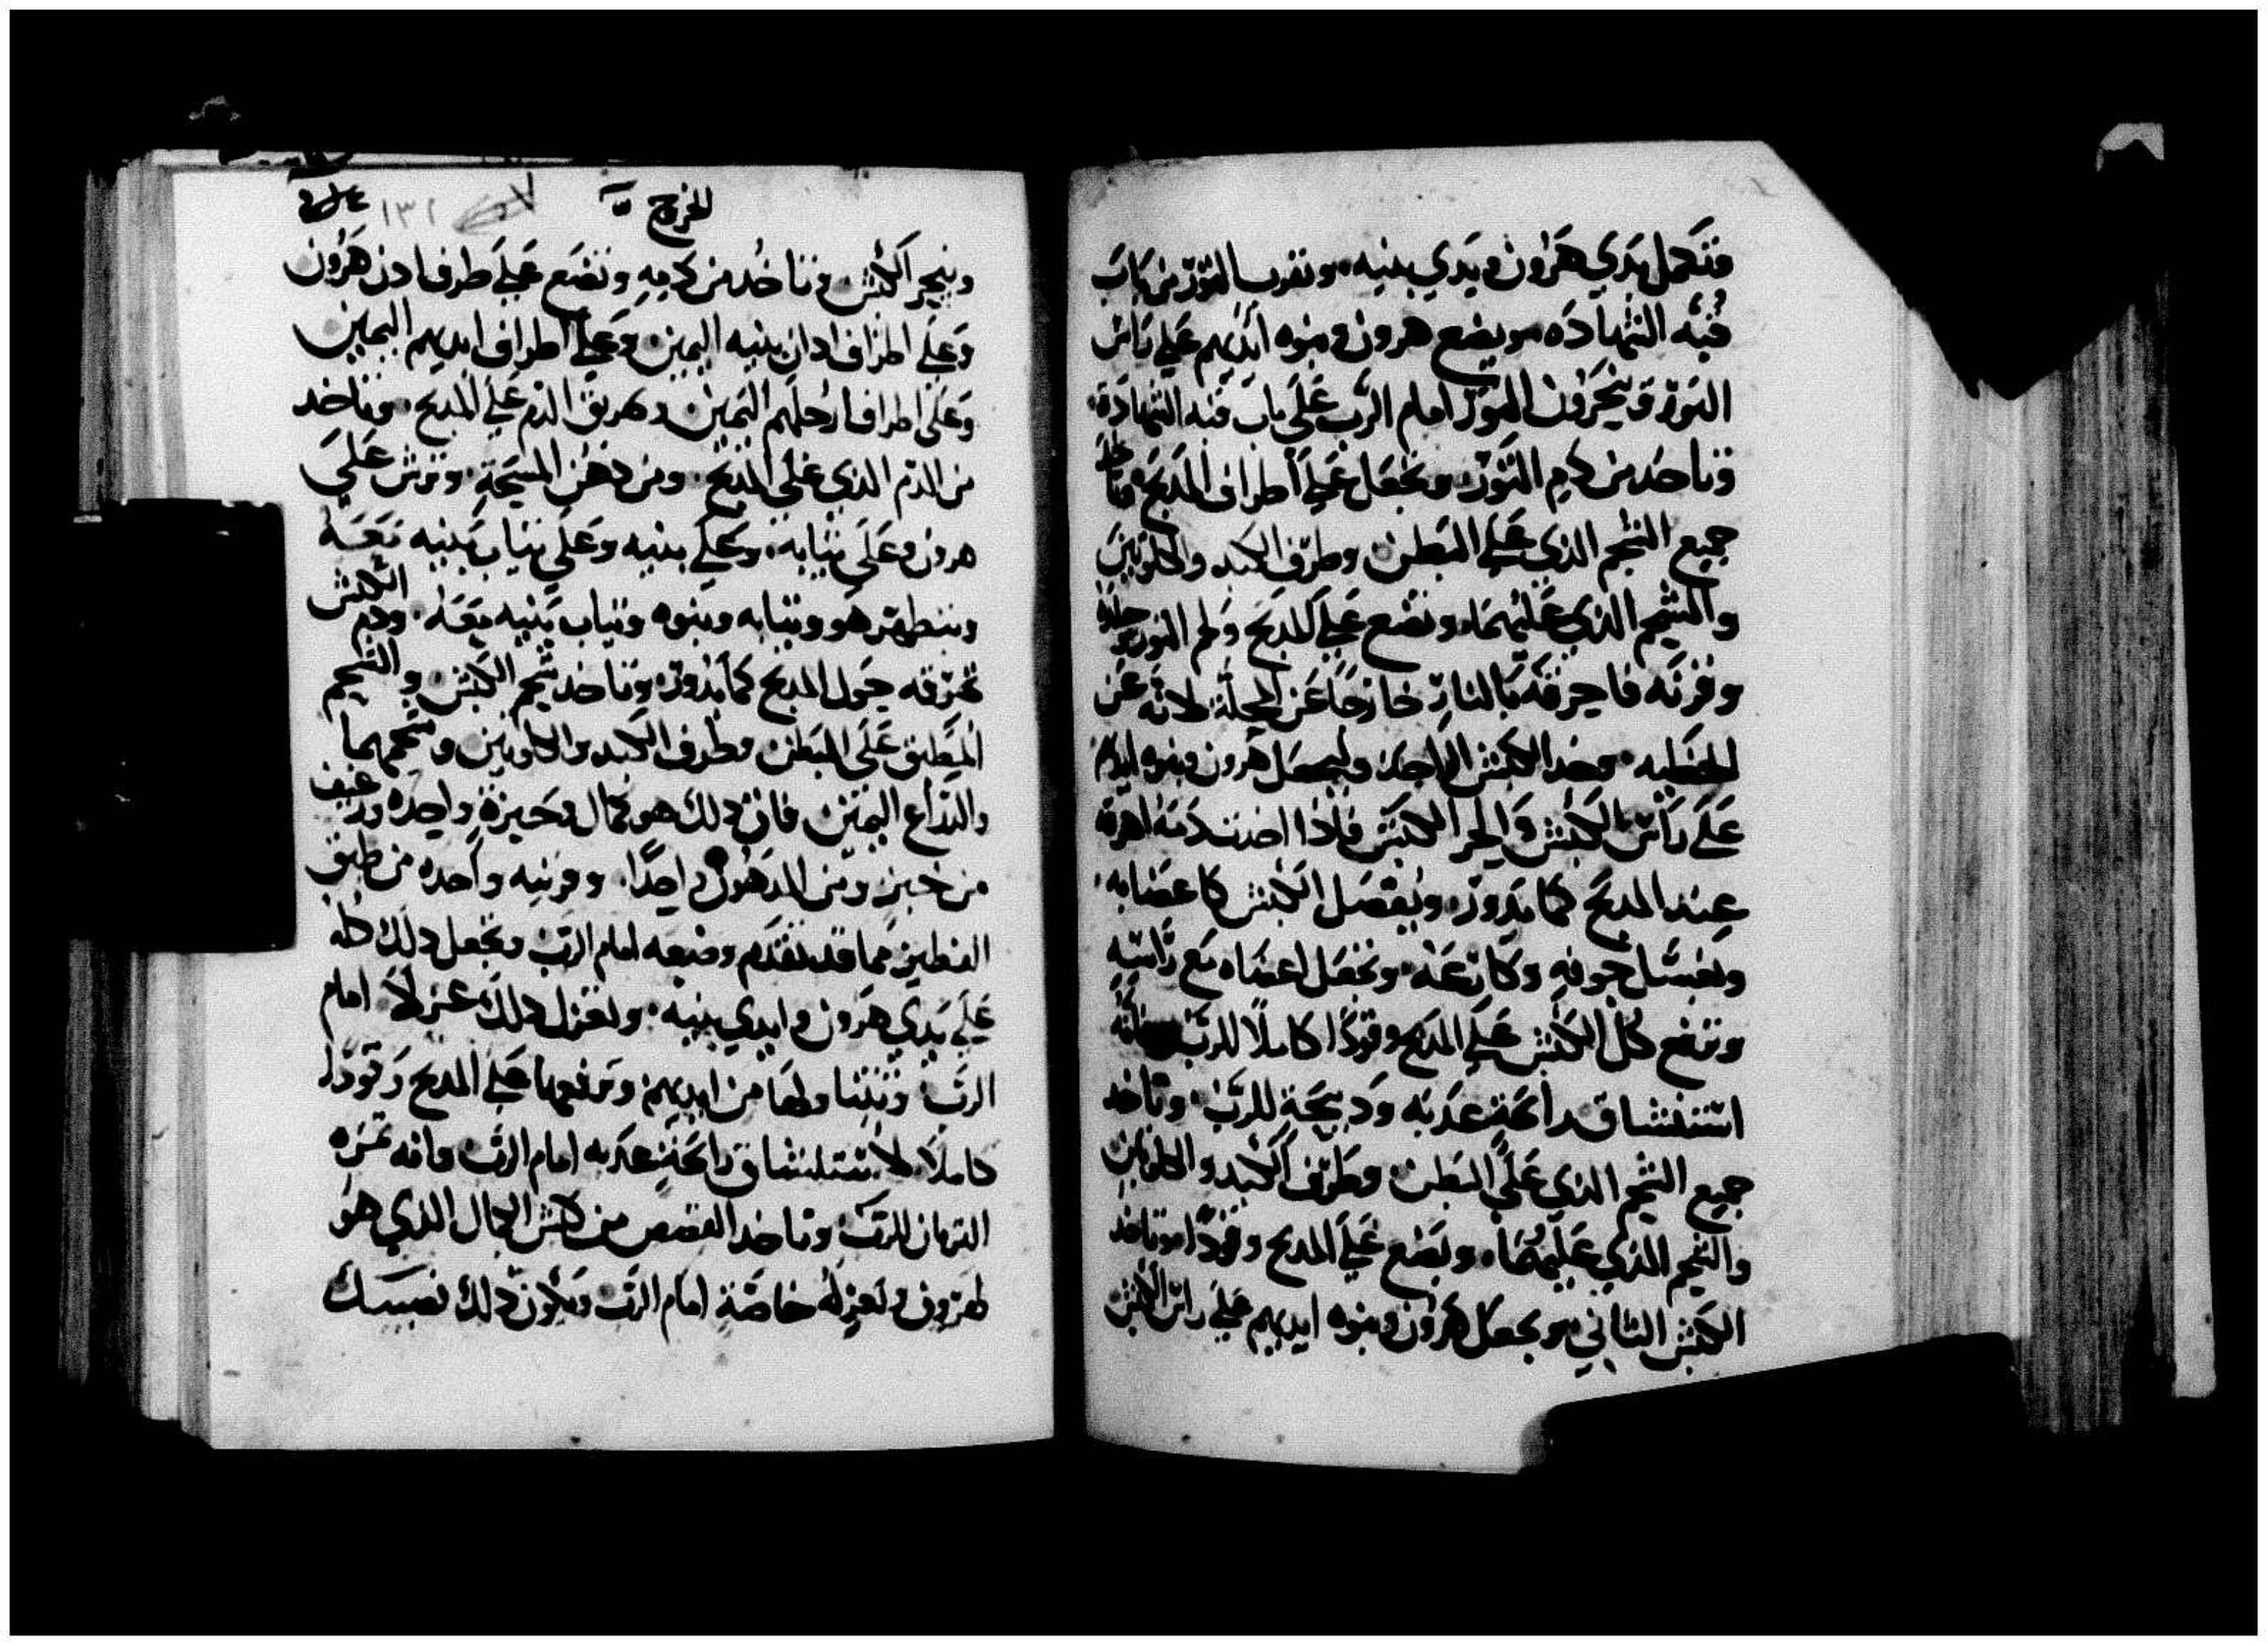 فتكمل يدي هرون ويدي بنيه. وتقرب الثور من باب
قبه الشهاده. ويضع هرون وبنوه ايديهم علي راس
الثور وينحرون الثور امام الرب علي باب قبه الشهادة.
وتاخد من دم الثور. وتجعل علي اطراف المدبح وتاخد
جميع الشحم الدي علي البطن وطرف الكبد والكلوتين
والشحم الدي عليهما. وتضع علي المدبح ولحم الثور وجلده
وفرثه فاحرقه بالنار خارجا عن المحلة لانه عن
الخطيه. وخد الكبش الواحد وليجعل هرون وبنوه ايديهم
علي راس الكبش وانحر الكبش فادا اخدت دمه اهرقه
عند المدبح كما يدور. وتفصل الكبش كاعضابه
وتغسل جوفه وكارعه. وتجعل اعضاه مع راسه
وترفع كل الكبش علي المدبح وقودا كاملا للرب فانه
استنشاق راىحة عدبه ودبيحة للرب. وتاخد
جميع الشحم الدي علي البطن وطرف الكبد والكلوتين
والشحم الدي عليهما. وتضع علي المدبح وقودا. وتاخد
الكبش الثاني ويجعل هرون وبنوه ايديهم علي راس الكبش
الخروج
١٣٢
وينحر الكبش وتاخد من دمه وتضع علي طرف ادن هرون
وعلي اطراف ادان بنيه اليمين وعلي اطراف ايديهم اليمين
وعلي اطراف ارجلهم اليمين وتهريق الدم علي المدبح. وتاخد
من الدم الدي علي المدبح. ومن دهن المسحة. وترش علي
هرون وعلي ثيابه. وعلي بنيه وعلي ثياب بنيه معه
ويتطهر هو وثيابه وبنوه وثياب بنيه معه. ودم الكبش
تهرقه حول المدبح كما يدور. وتاخد شحم الكبش والشحم
المطبق علي البطن وطرف الكبد والكلوتين وشحمهما
والدراع اليمين فان دلك هو كمال وخبزة واحده ورغيف
من خبز ومن المدهون واحدا. وقرنيه واحده من طبق
الفطير مما قد تقدم وضعه امام الرب وتجعل دلك كله
علي يدي هرون وايدي بنيه. وتعزل دلك عزلا امام
الرب وتتناولها من ايديهم وترفعها علي المدبح وقودا
كاملا. لاستنشاق راىحة عدبه امام الرب وانه ثمره
القربان للرب وتاخد القصص من كبش الكمال الدي هو
لهرون وتعزله خاصة امام الرب ويكون دلك نصيبك